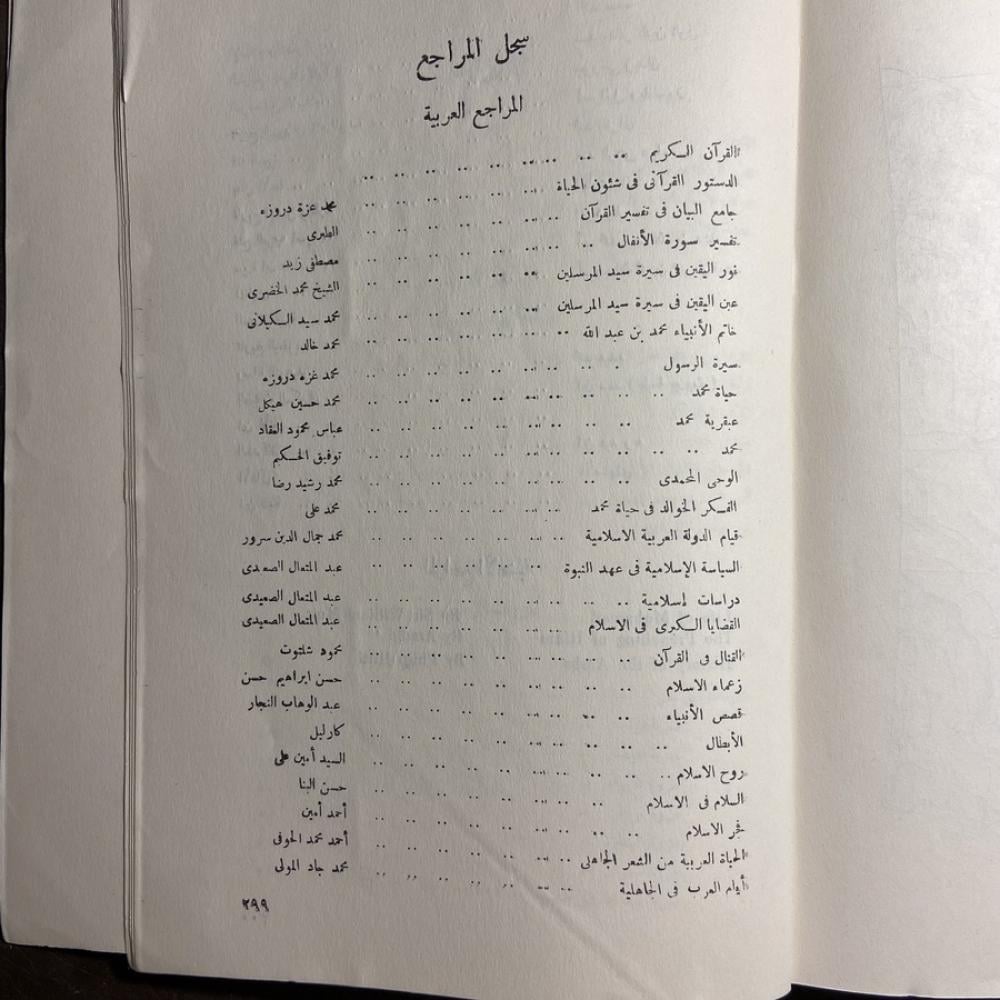 سجل المراجع
المراجع العربية
القرآن الكريم
الدستور القرآنى فى شئون الحياة .. محمد عزة دروزه
جامع البيان فى تفسير القرآن .. الطبرى
تفسير سورة الأنفال .. مصطفى زيد
نور اليقين فى سيرة سيد المرسلين .. الشيخ محمد الخضرى
عين اليقين فى سيرة سيد المرسلين .. محمد سيد الكيلانى
خاتم الأنبياء محمد بن عبد الله .. محمد خالد
سيرة الرسول .. محمد عزه دروزه
حياة محمد .. محمد حسين هيكل
عبقرية محمد .. عباس محمود العقاد
محمد .. توفيق الحكيم
الوحى المحمدى .. محمد رشيد رضا
الفكر الخوالد فى حياة محمد .. محمد على
قيام الدولة العربية الاسلامية .. محمد جمال الدين سرور
السياسة الإسلامية فى عهد النبوة .. عبد المتعال الصعيدى
دراسات إسلامية .. عبد المتعال الصعيدى
القضايا الكبرى فى الاسلام .. عبد المتعال الصعيدى
القتال فى القرآن .. محمود شلتوت
زعماء الاسلام .. حسن ابراهيم حسن
قصص الأنبياء .. عبد الوهاب النجار
الأبطال .. كارليل
روح الاسلام .. السيد أمين على
السلام فى الاسلام .. حسن البنا
فجر الاسلام .. أحمد أمين
الحياة العربية من الشعر الجاهلى .. أحمد محمد الحوفى
أيام العرب فى الجاهلية .. محمد جاد المولى
٢٩٩